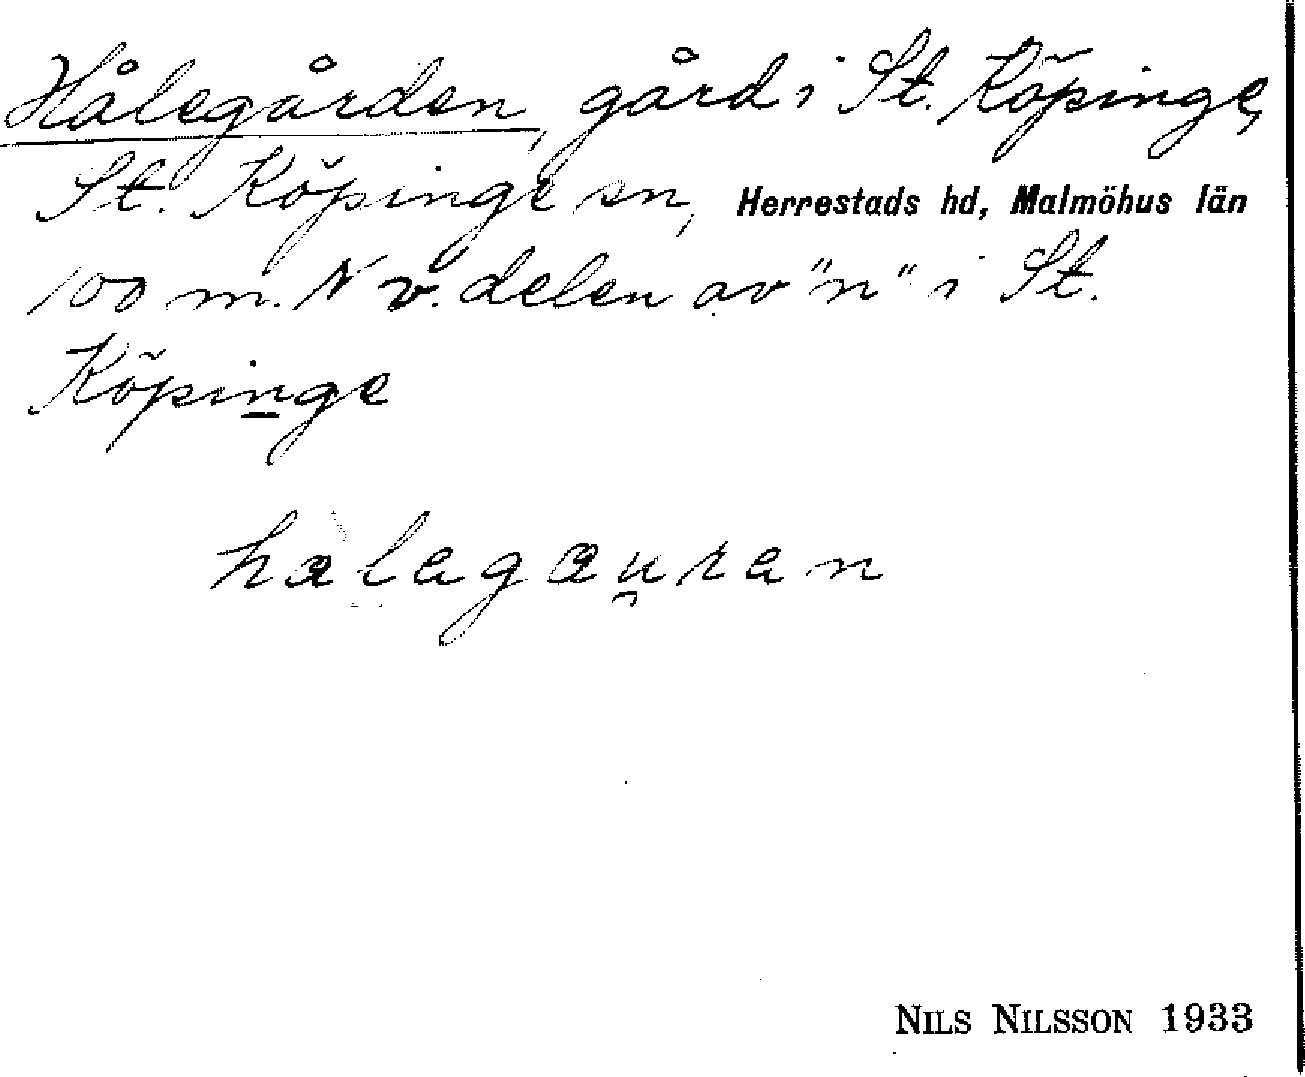 Hålegården, gård i St. Köpinge,
St. Köpinge sn, Herrestads hd, Malmöhus län
100 m. N v. delen av "n" i St.
Köpinge
hælagæu̯ran
NILS NILSSON 1933